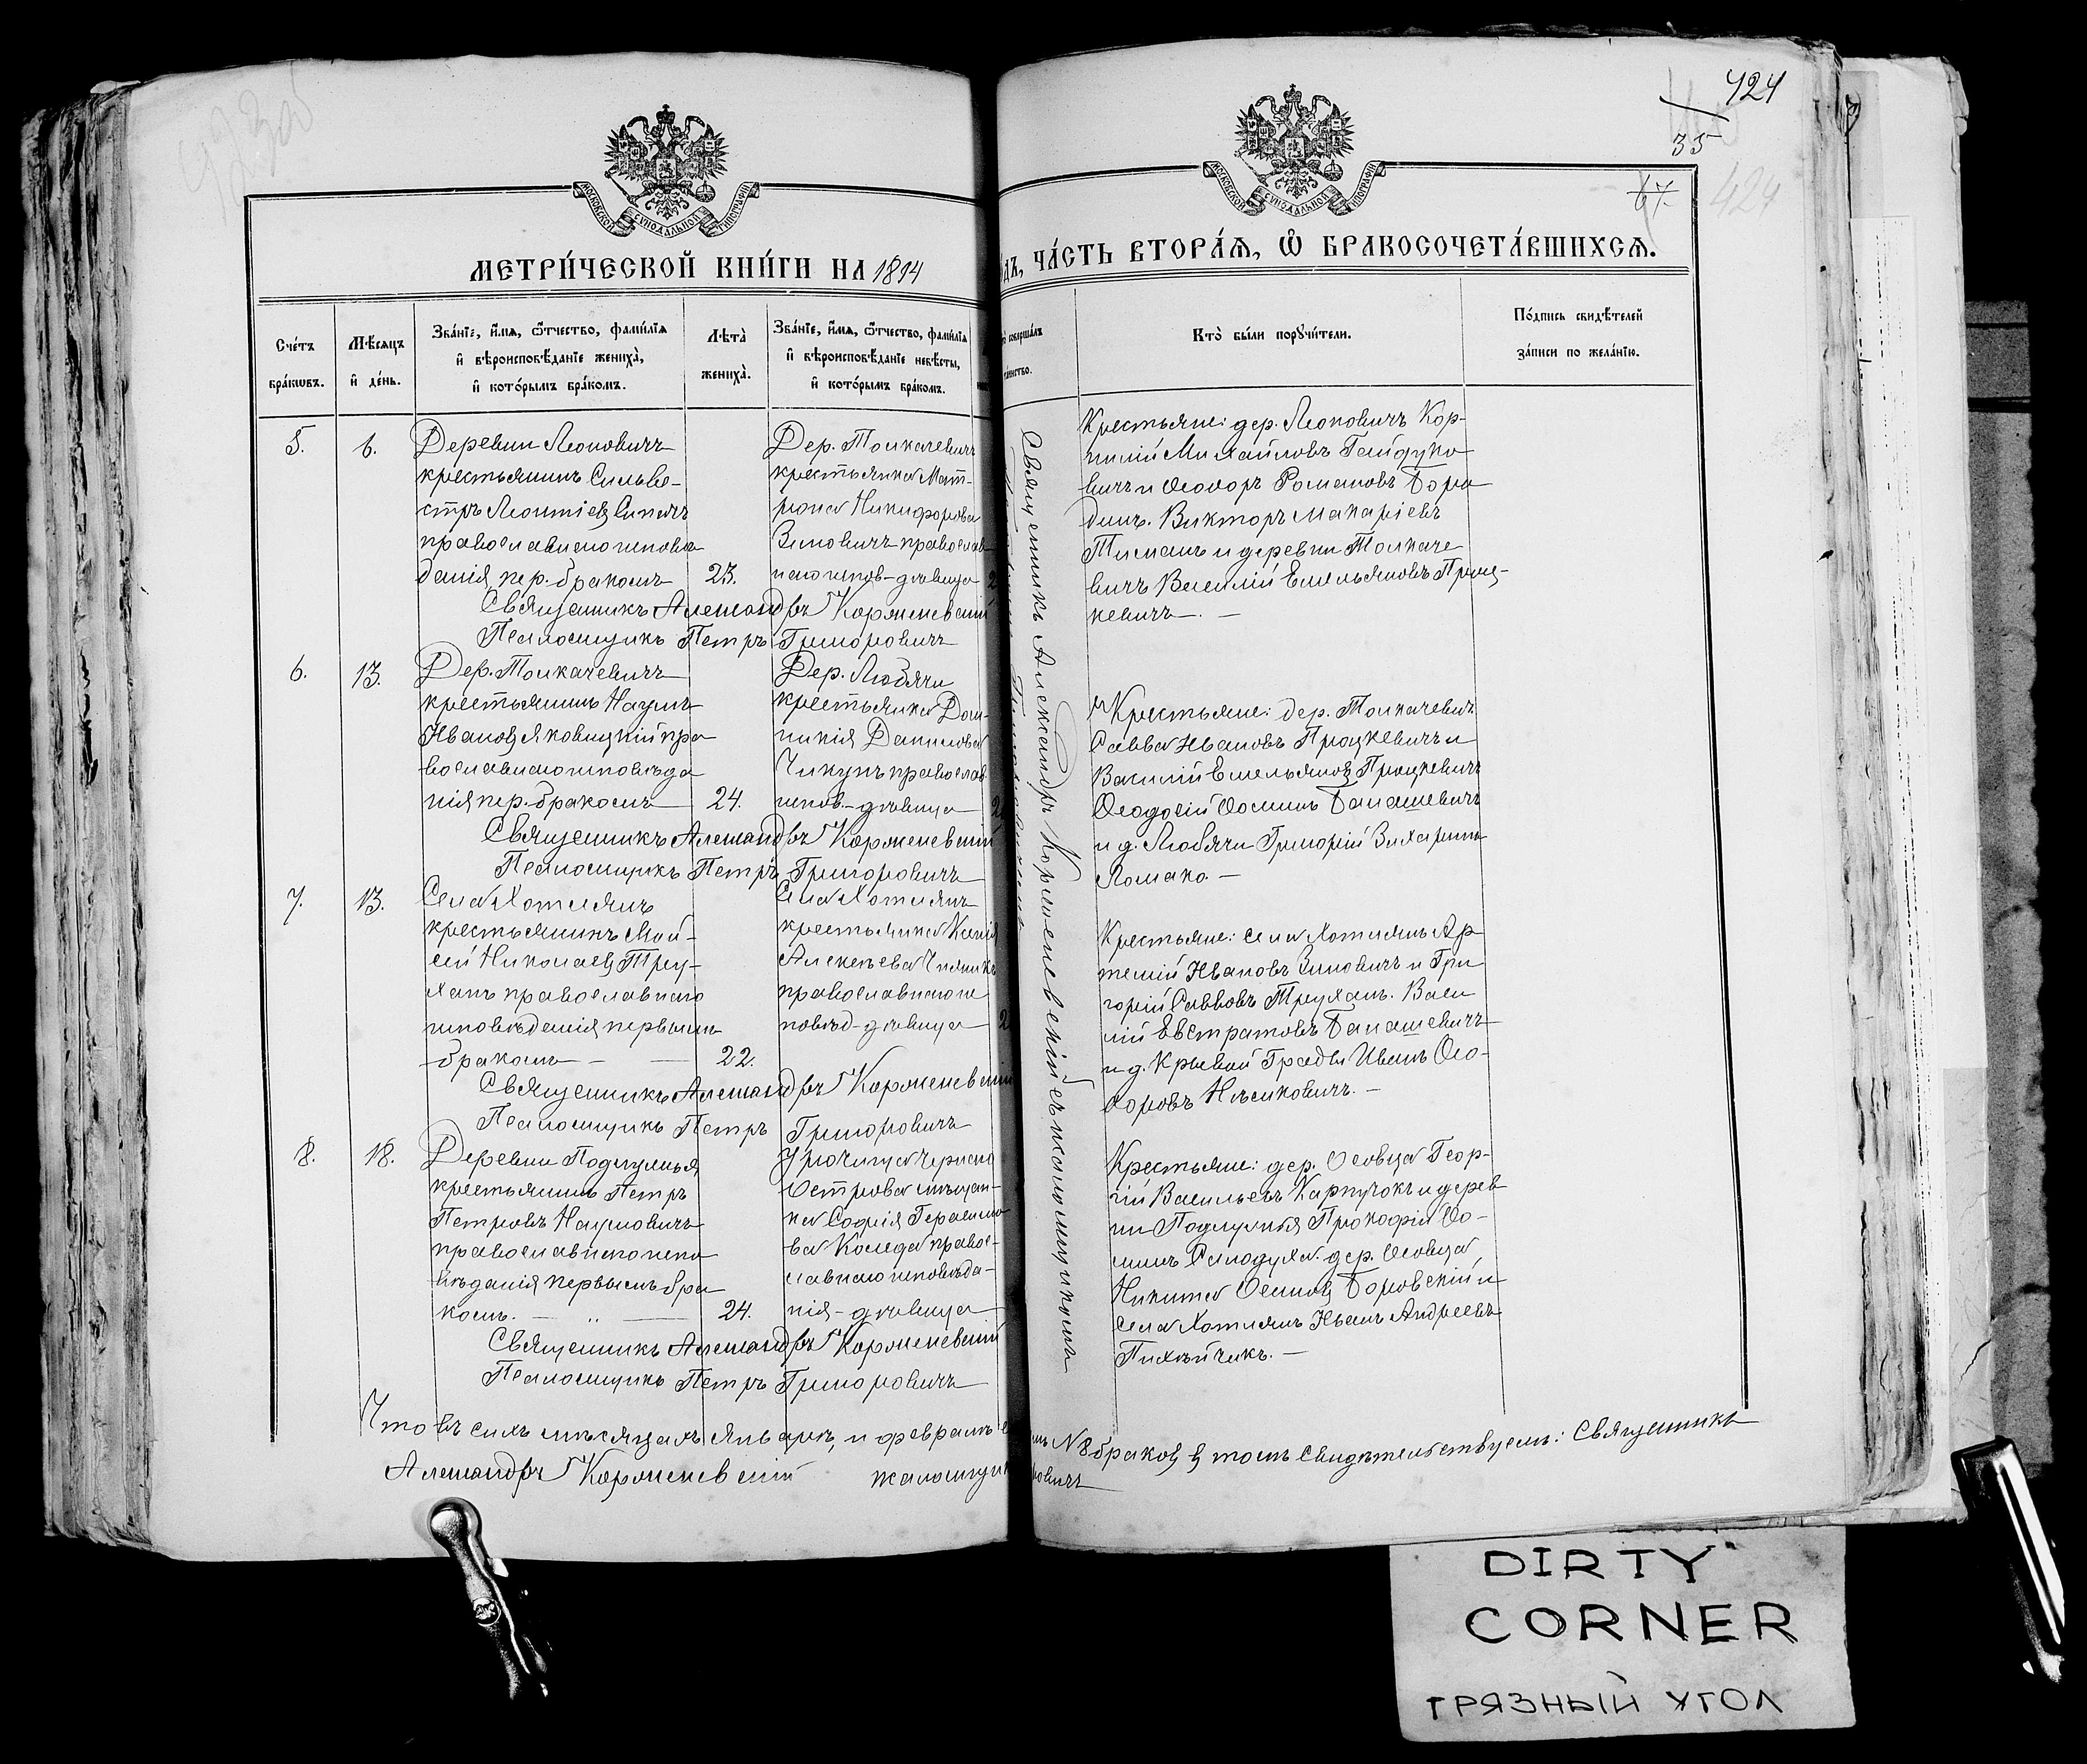 424
35
67
424
МОСКОВСКОЙ СѴНОДАЛЬНОЙ ТИПОГРАФІИ
МОСКОВСКОЙ СѴНОДАЛЬНОЙ ТИПОГРАФІИ
МЕТРИ́ЧЕСКОЙ КНИ́ГИ НА 1894
ДЪ, ЧА́СТЬ ВТОРА́Ѧ, Ѽ БРАКОСОЧЕТА́ВШИХСѦ.
Сче́тъ бра́кѡвъ.
Мѣ́сѧцъ и҆ де́нь.
Зва́нїе, и҆́мѧ, ѻ҆́тчество, фами́лїѧ и҆ вѣроисповѣ́данїе жениха̀, и҆ кото́рымъ бра́комъ.
Лѣ̀та̀ жениха̀.
Зва́нїе, и҆́мѧ, ѻ҆́тчество, фами́лїѧ и҆ вѣроисповѣ́данїе невѣ́сты, и҆ кото́рымъ бра́комъ.
соверша́лъ
Кто̀ бы́ли порꙋчи́тели.
По́дпись свидѣ́телей за́писи по жела́нїю.
5.
6.
Деревни Леоновичъ
крестьянинъ Сильве-
стръ
православнаго исповѣ
данія, пер. бракомъ
23.
Дер. Толкачевичъ
крестьянка Мат-
рона Никифорова
Зиновичъ православ
наго испов-дѣвица
Крестьяне: дер. Леоновичъ Кор-
нилій Михайловъ Гайдуко
вичъ и Ѳеодоръ Романовъ Боро
динъ. Викторъ Макаріевъ
Тиманъ и деревни Толкаче
вичъ Василій Емельяновъ Проц-
кевичъ. —
Священникъ Александръ Корженевскій
Псаломщикъ Петръ Григоровичъ
6.
13.
Дер. Толкачевичъ
крестьянинъ Наумъ
Ивановъ Яковицкій пра
вославнаго исповѣда
нія пер. бракомъ
24.
Дер. Любячи
крестьянка Дом-
никія Данилова
Чикунъ православ
испов.-дѣвица
Крестьяне: дер. Толкачевичъ
Савва Ивановъ Процкевичъ и
Василій Емельяновъ Процкевичъ
Ѳеодосій Ѳоминъ Балашевичъ
и д. Любячи Григорій Захаринъ
Ломако. —
Священникъ Александръ Корженевскій
Псаломщикъ Петръ Григоровичъ
7.
13.
Села Хотлянъ
крестьянинъ Мои-
сей Николаевъ Тру-
ханъ православнаго
исповѣданія первымъ
бракомъ
22.
Села Хотлянъ
крестьянка Ксенія
Алексѣева
православнаго ис
повѣд-дѣвица
Крестьяне: села Хотлянъ Ар
темій Ивановъ Зиновичъ и Гри
горій Саввовъ Труханъ. Васи
лій Евстратовъ Балашевичъ
и д. Кривой Гряды Иванъ Ѳео-
доровъ
Священникъ Александръ Корженевскій
Псаломщикъ Петръ Григоровичъ
8.
18.
Деревни Подлужья
крестьянинъ Петръ
Петровъ Наумовичъ
православнаго испо
вѣданія первымъ бра
комъ.
24.
Урочища Чернаго
Острова мѣщан-
ка Софія Герасимо
ва Коледа правос-
лавнаго исповѣда-
нія-дѣвица
Крестьяне: дер. Осовца Геор-
гій Васильевъ Карпучокъ и дерев
ни Подлужья Прокофій Ѳо-
минъ Самодуха. дер. Осовца
Никита Осиповъ Боровскій и
села Хотлянъ Иванъ Андреевъ
Пихнейчикъ. —
Священникъ Александръ Корженевскій
Псаломщикъ Петръ Григоровичъ
Священникъ Александръ Корженевскій съ псаломщикомъ
Что въ сихъ мѣсяцахъ январѣ, и февралѣ № 8 браковъ въ томъ свидѣтельствуемъ: Священникъ
Александръ Корженевскій
DIRTY
CORNER
ГРЯЗНЫЙ УГОЛ